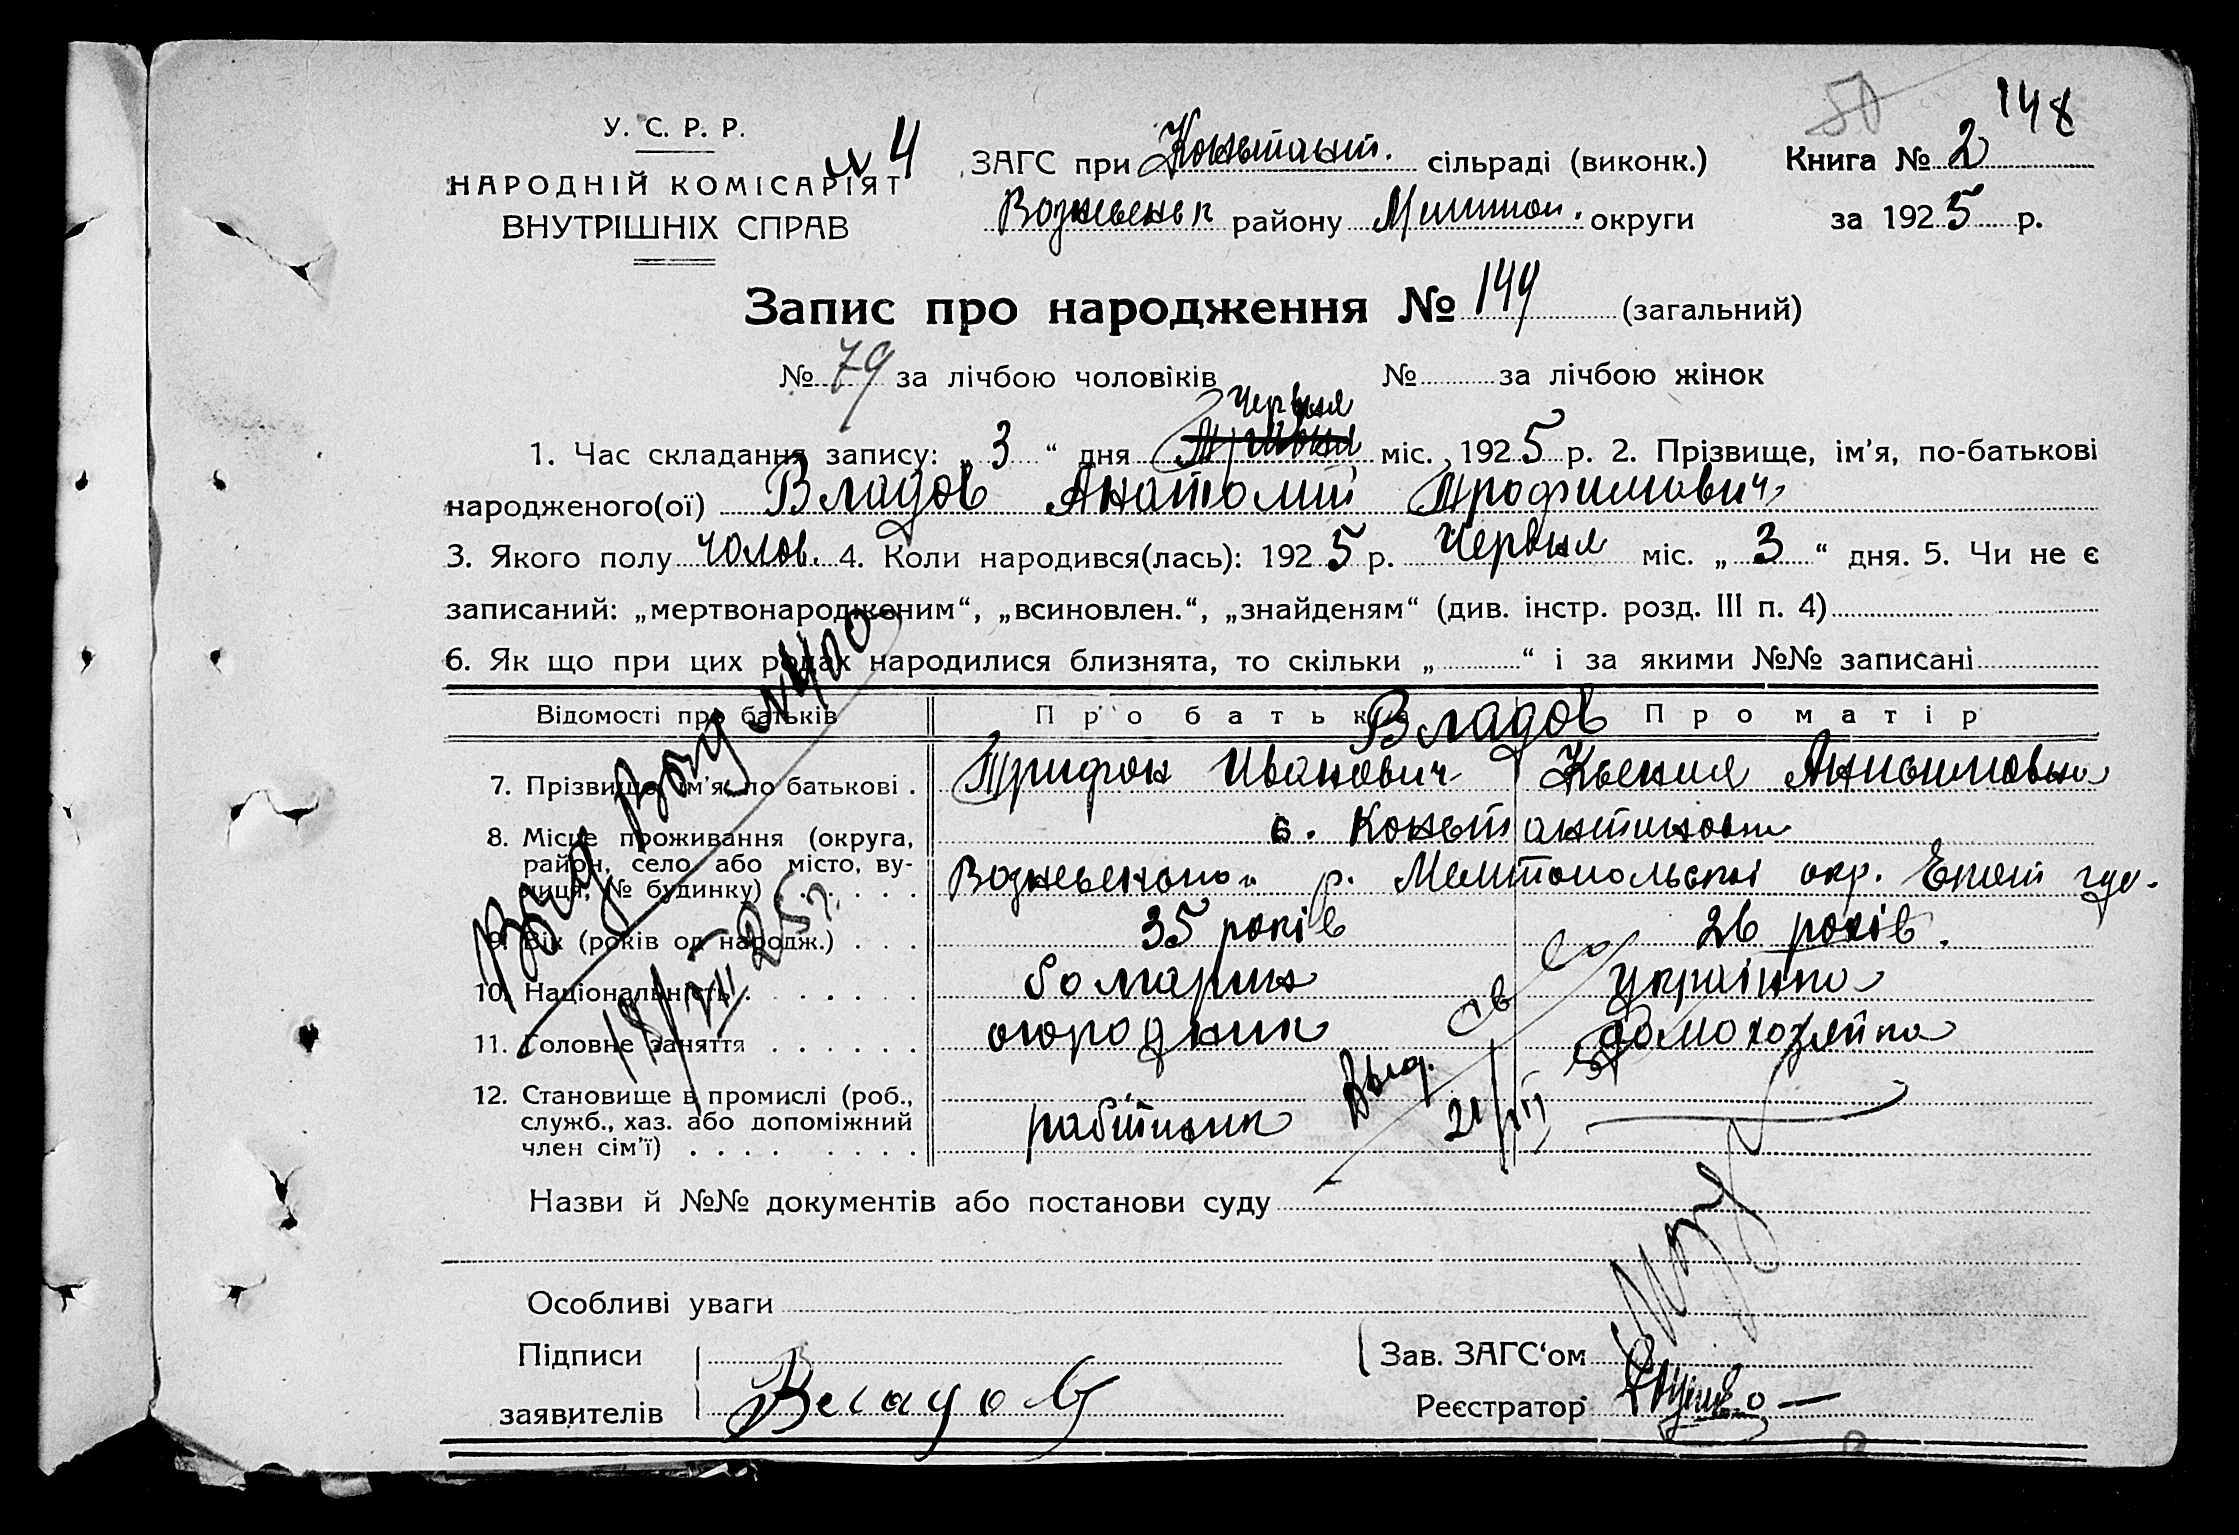 50 148
У. С. Р. Р.
НАРОДНІЙ КОМІСАРІЯТ
ВНУТРІШНІХ СПРАВ
№ 4
ЗАГС при Констант. сільраді (виконк.) Книга № 2
Вознесенк району Мелитоп. округи за 1925 р.
Запис про народження № 144 (загальний)
№ 79 за лічбою чоловіків № за лічбою жінок
Червня
1. Час складання запису: „ 3 “ дня міс. 1925 р. 2. Прізвище, ім'я, по-батькові
народженого(ої) Владов Анатолий Трофимович
3. Якого полу чолов. 4. Коли народився(лась): 1925 р. Червня міс. „ 3 “ дня. 5. Чи не є
записаний: „мертвонародженим“, „всиновлен.“, „знайденям“ (див. інстр. розд. III п. 4)
6. Як що при цих родах народилися близнята, то скільки „ “ і за якими №№ записані
Відомості про батьків Про батька Про матір
Владов
7. Прізвище, ім'я, по батькові . Трифон Иванович Ксения Анисимовна
8. Місце проживання (округа, с. Константиновт
район, село або місто, ву-
лиця, № будинку) . . . . Вознесенског р. Мелітопольскоі окр. Екат губ.
9. Вік (років од народж.) . . . 35 років 26 років.
10. Національність . . . . . . . болгарин украінка
11. Головне заняття . . . . . . огородник домохозяйка
12. Становище в промислі (роб.,
служб., хаз. або допоміжний робітник
член сім'ї) . . . . . . . .
18/VII 25 г.
Выд.
21/VII
Назви й №№ документів або постанови суду
Особливі уваги
Підписи
заявителів Владов
Зав. ЗАГС‘ом
Реєстратор